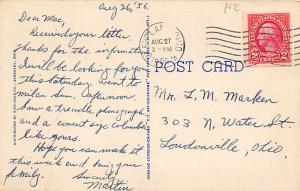 Aug 26, '36.
HE
Dear Mac,
Received your letter,
thanks for the information
I will be looking for you
this Saturday, went to
milan Sun. afternoon,
Saw a treadle, phonograph
and a concert size Columbia
like yours.
Hope you can make it
this week and bring your
family.
Sincerely
Martin
AUG 27
2-PM
POST CARD
Mr. L. M. Marken
303 N. Water St.
Loudonville,
Ohio.